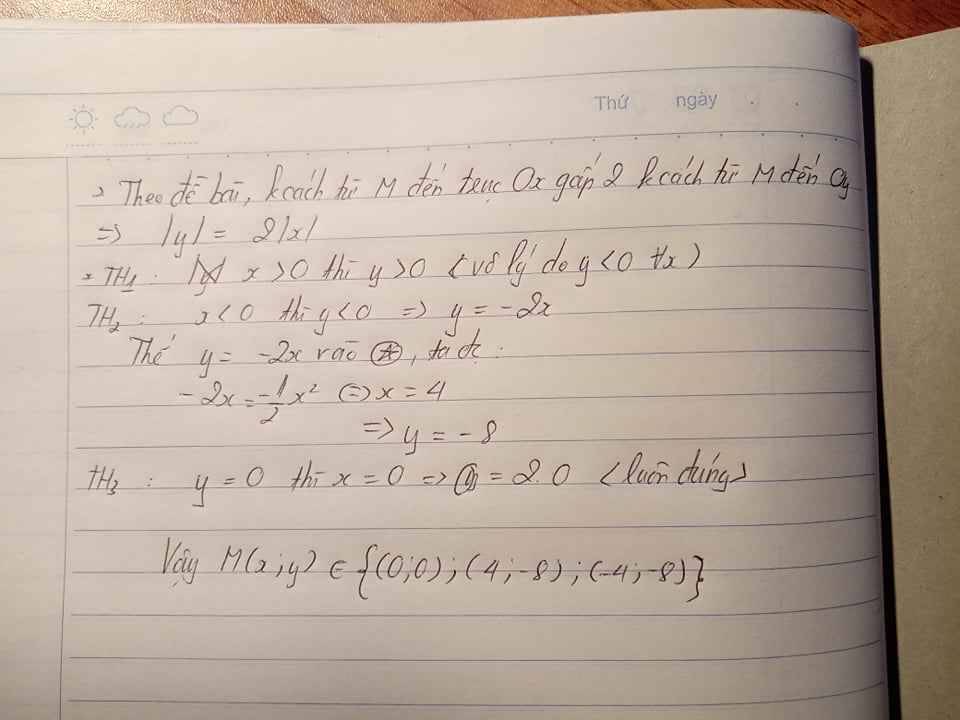 Thứ ngày
→ Theo đề bài, k cách từ M đến trục Ox gấp 2 k cách từ M đến Oy
=> |y| = 2|x|
* TH1 : x > 0 thì y > 0 < vô lý do y < 0 ∀x >
TH2 : x < 0 thì y < 0 => y = -2x
Thế y = -2x vào (*), ta đc :
-2x = -1/2 x² <=> x = 4
=> y = -8
TH3 : y = 0 thì x = 0 => 0 = 2.0 <luôn đúng>
Vậy M(x;y) ∈ {(0;0);(4;-8);(-4;-8)}